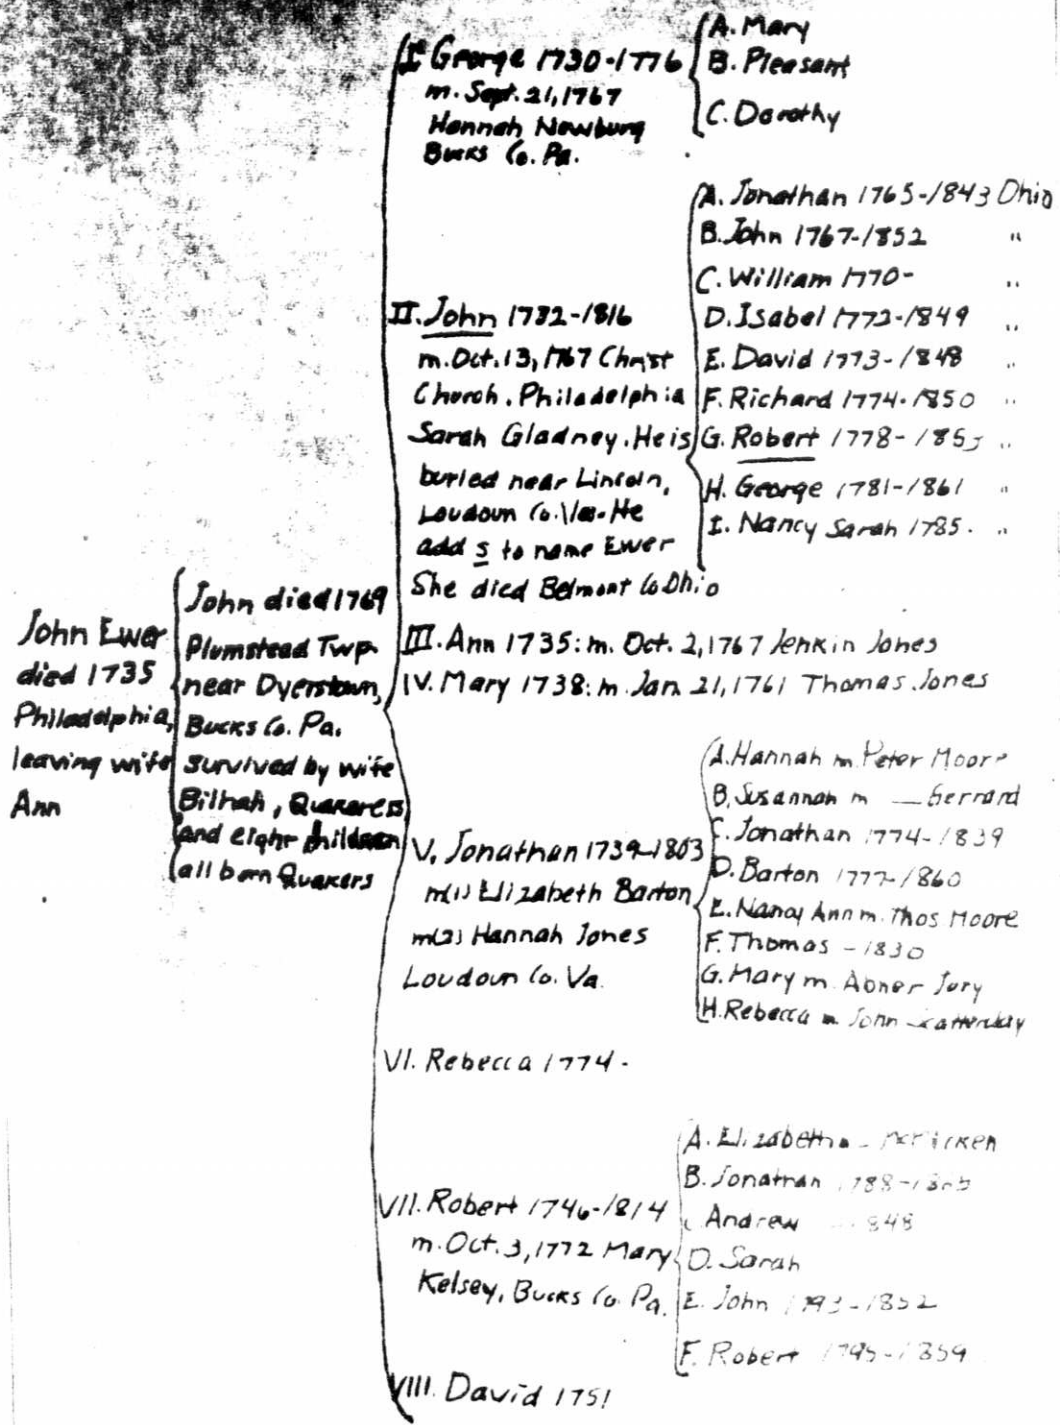 John Ewer
died 1735
Philadelphia,
leaving wife
Ann
John died 1769
Plumstead Twp.
near Dyerstown,
Bucks Co. Pa.
survived by wife
Bilhah, Quakeress
and eight children
all born Quakers
I. George 1730-1776
m. Sept. 21, 1767
Hannah Newburg
Bucks Co. Pa.
A. Mary
B. Pleasant
C. Dorothy
II. John 1732-1816
m. Oct. 13, 1767 Christ
Church, Philadelphia
Sarah Gladney. He is
buried near Lincoln,
Loudoun Co. Va. He
add s to name Ewer
She died Belmont Co Ohio
A. Jonathan 1765-1843 Ohio
B. John 1767-1852 "
C. William 1770- "
D. Isabel 1772-1849 "
E. David 1773-1848 "
F. Richard 1774-1850 "
G. Robert 1778- "
H. George 1781-1861 "
I. Nancy Sarah 1785- "
III. Ann 1735: m. Oct. 2, 1767 Jenkin Jones
IV. Mary 1738: m. Jan. 21, 1761 Thomas Jones
V. Jonathan 1739-1803
m(1) Elizabeth Barton
m(2) Hannah Jones
Loudoun Co. Va.
A. Hannah m. Peter Moore
B. Susannah m __ Gerrard
C. Jonathan 1774-1839
D. Barton 1777-1860
E. Nancy Ann m. Thos Moore
F. Thomas -1830
G. Mary m. Abner Jury
H. Rebecca m. John
VI. Rebecca 1774-
VII. Robert 1746-1814
m. Oct. 3, 1772 Mary
Kelsey, Bucks Co. Pa.
A. Elizabeth m -
B. Jonathan 1788-
Andrew 848
D. Sarah
E. John 1793-1852
F. Robert 1795-1859
VIII. David 1751